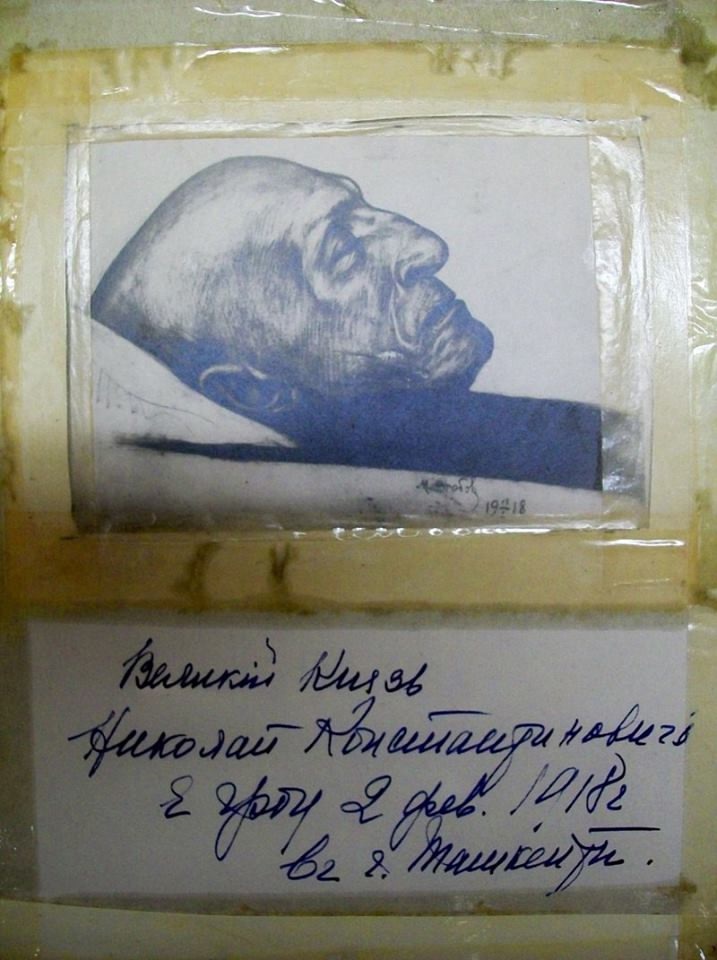 19 18
Великій Князь
Николай Константиновичъ
в гробу 2 фев. 1918 г
въ г. Ташкентъ.